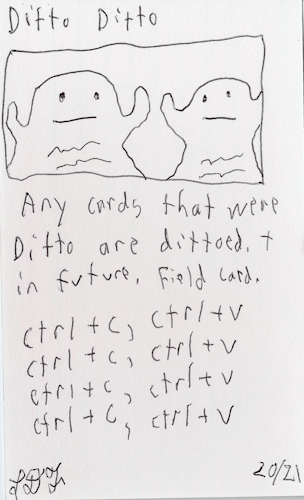 Ditto Ditto
Any cards that were
Ditto are dittoed, +
in future. Field card.
ctrl + c, ctrl + v
ctrl + c, ctrl + v
ctrl + c, ctrl + v
ctrl + c, ctrl + v
20/21